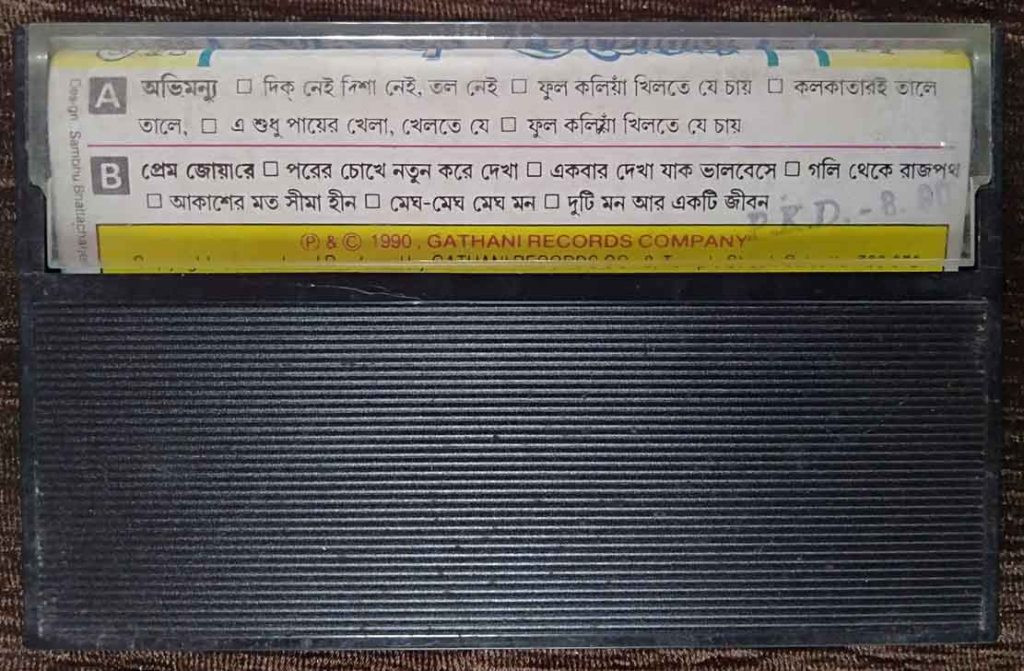 A অভিমন্যু □ দিক্ নেই নিশা নেই, তল নেই □ ফুল কলিয়াঁ খিলতে যে চায় □ কলকাতারই তালে
তালে, □ এ শুধু পায়ের খেলা, খেলতে যে □ ফুল কলিয়াঁ খিলতে যে চায়
B প্রেম জোয়ারে □ পরের চোখে নতুন করে দেখা □ একবার দেখা যাক ভালবেসে □ গলি থেকে রাজপথ
□ আকাশের মত সীমা হীন □ মেঘ-মেঘ মেঘ মন □ দুটি মন আর একটি জীবন
P.K.D. - 8.90
Ⓟ & © 1990, GATHANI RECORDS COMPANY
Design: Sambhu Bhattacharjee